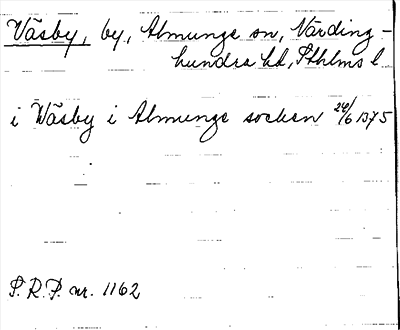 Väsby, by, Almunge sn, Närding-
hundra hd, Sthlms l
i Wäsby i Almunge socken 24/6 1375
S.R.P. nr. 1162